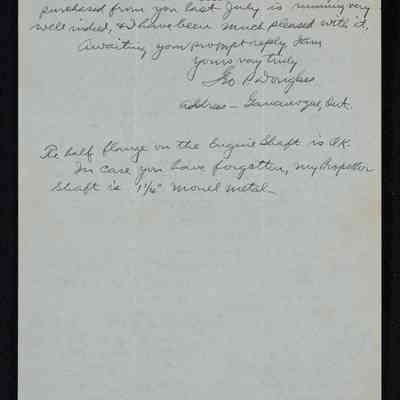 purchased from you last July is running very
well indeed, & I have been much pleased with it.
Awaiting your prompt reply I am
yours very truly
Geo P Douglas
address - Gananoque, Ont.
Re half flange on the Engine Shaft is O.K.
In case you have forgotten, my Propeller
Shaft is 1 1/16" monel metal